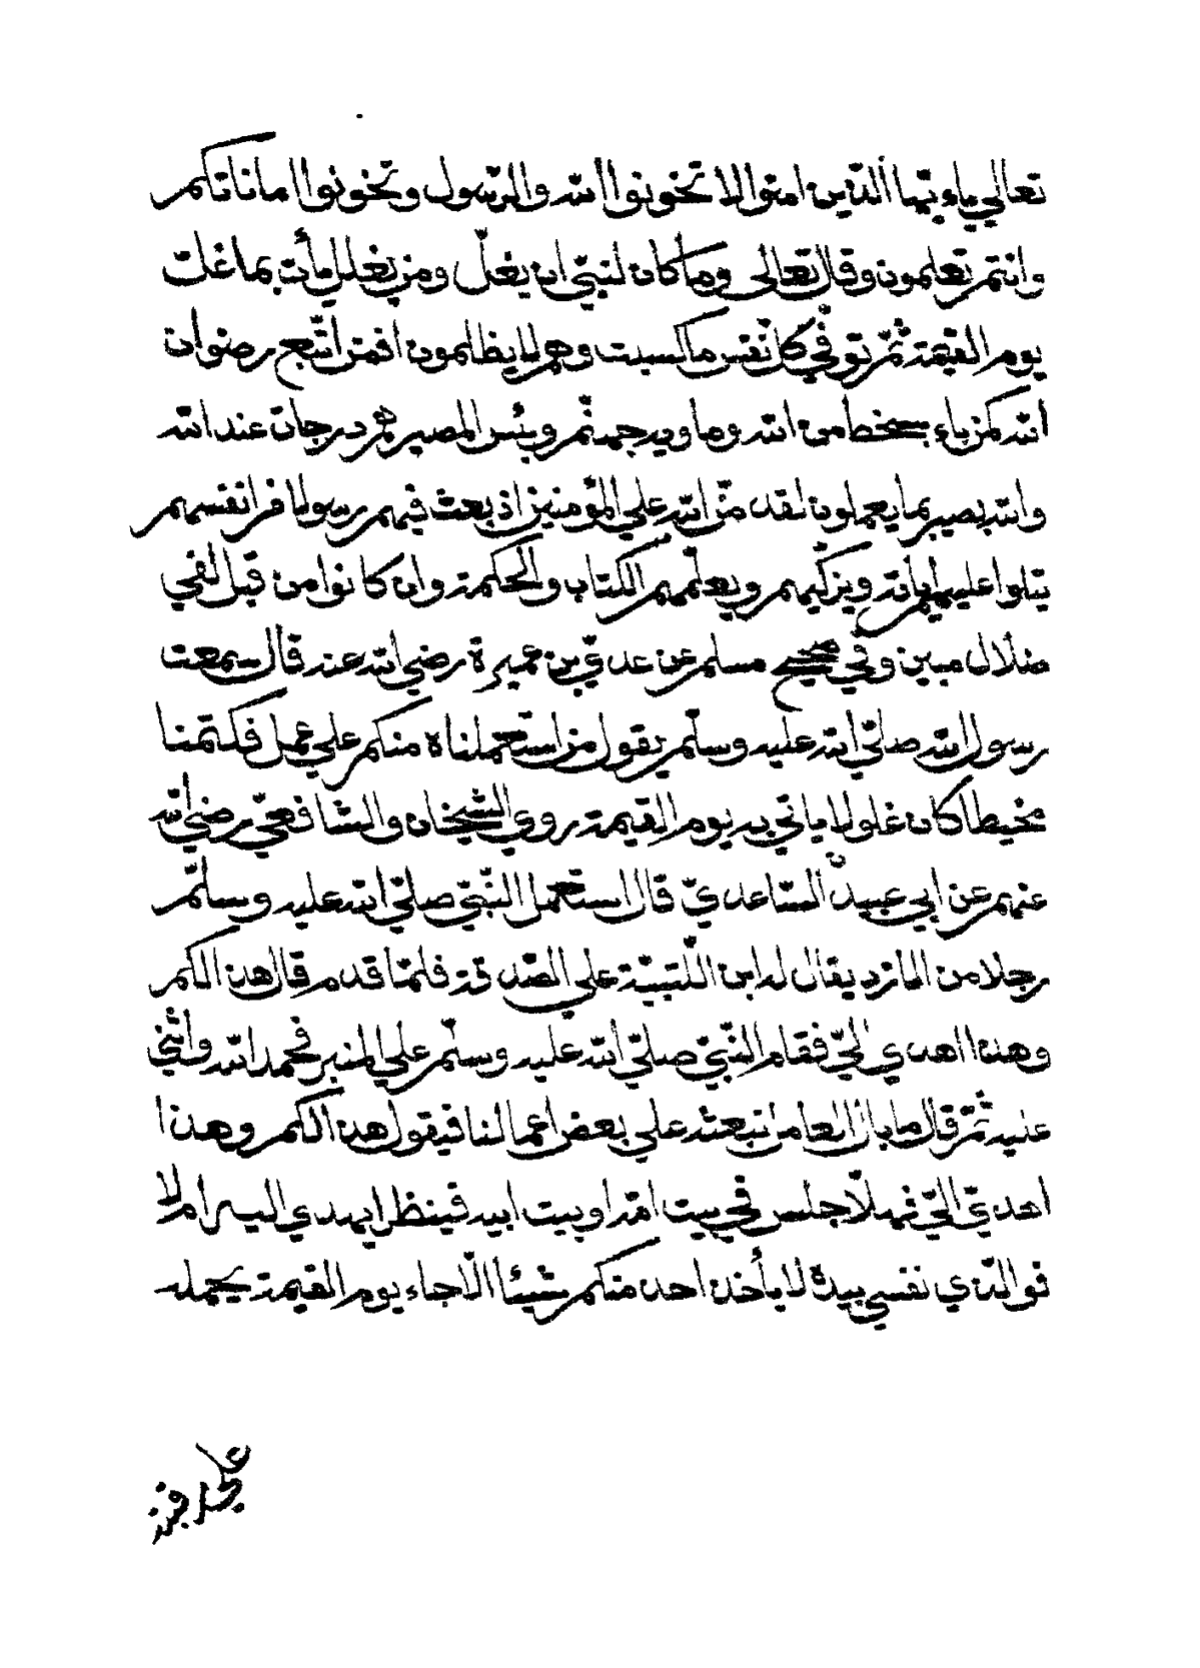 تعالي ياء يّها الّذين امنوا لا تخونوا اللّه والرّسول وتخونوا اماناتاكم
وانتم تعلمون وقال تعالى وما كان لنبيّ ان يغلّ ومن يغلل يأت بما غلّ
يوم القيمة ثمّ توفّي كلّ نفس ما كسبت وهم لا يظلمون افمن اتّبع رضوان
اللّه كمن باء بسخط من اللّه وماويه جهنّم وبئس المصير هم درجات عند اللّه
واللّه بصير بما يعملون لقد منّ اللّه علي المؤمنين اذ بعث فيهم رسولا من انفسهم
يتلوا عليهم ايأته ويزكّيهم ويعلّمهم الكتاب والحكمة وان كانوا من قبل لفي
ضلال مبين وفي صحيح مسلم عن عديّ بن عميرة رضي اللّه عنه قال سمعت
رسول اللّه صلّي اللّه عليه وسلّم يقول من استعملناه منكم علي عمل فكتمنا
مخيطا كان غلولا ياتي به يوم القيمة روي الشّيخان والشّافعيّ رضي اللّه
عنهم عن ابي عبيد السّاعديّ قال استعمل النّبيّ صلّي اللّه عليه وسلّم
رجلا من الازد يقال له ابن اللّتبيّة علي الصّدقة فلمّا قدم قال هذا لكم
وهذا اهدي اليّ فقام النّبيّ صلّي اللّه عليه وسلّم علي المنبر فحمد اللّه واثني
عليه ثمّ قال ما بال العامل نبعثه علي بعض اعمالنا فيقول هذا لكم وهذا
اهديّ اليّ فهلّا جلس في بيت امّه او بيت ابيه فينظر ايهدي اليه ام لا
فوالّذي نفسي بيده لا يأخذ احد منكم شيئا الّا جاء يوم القيمة يحمله